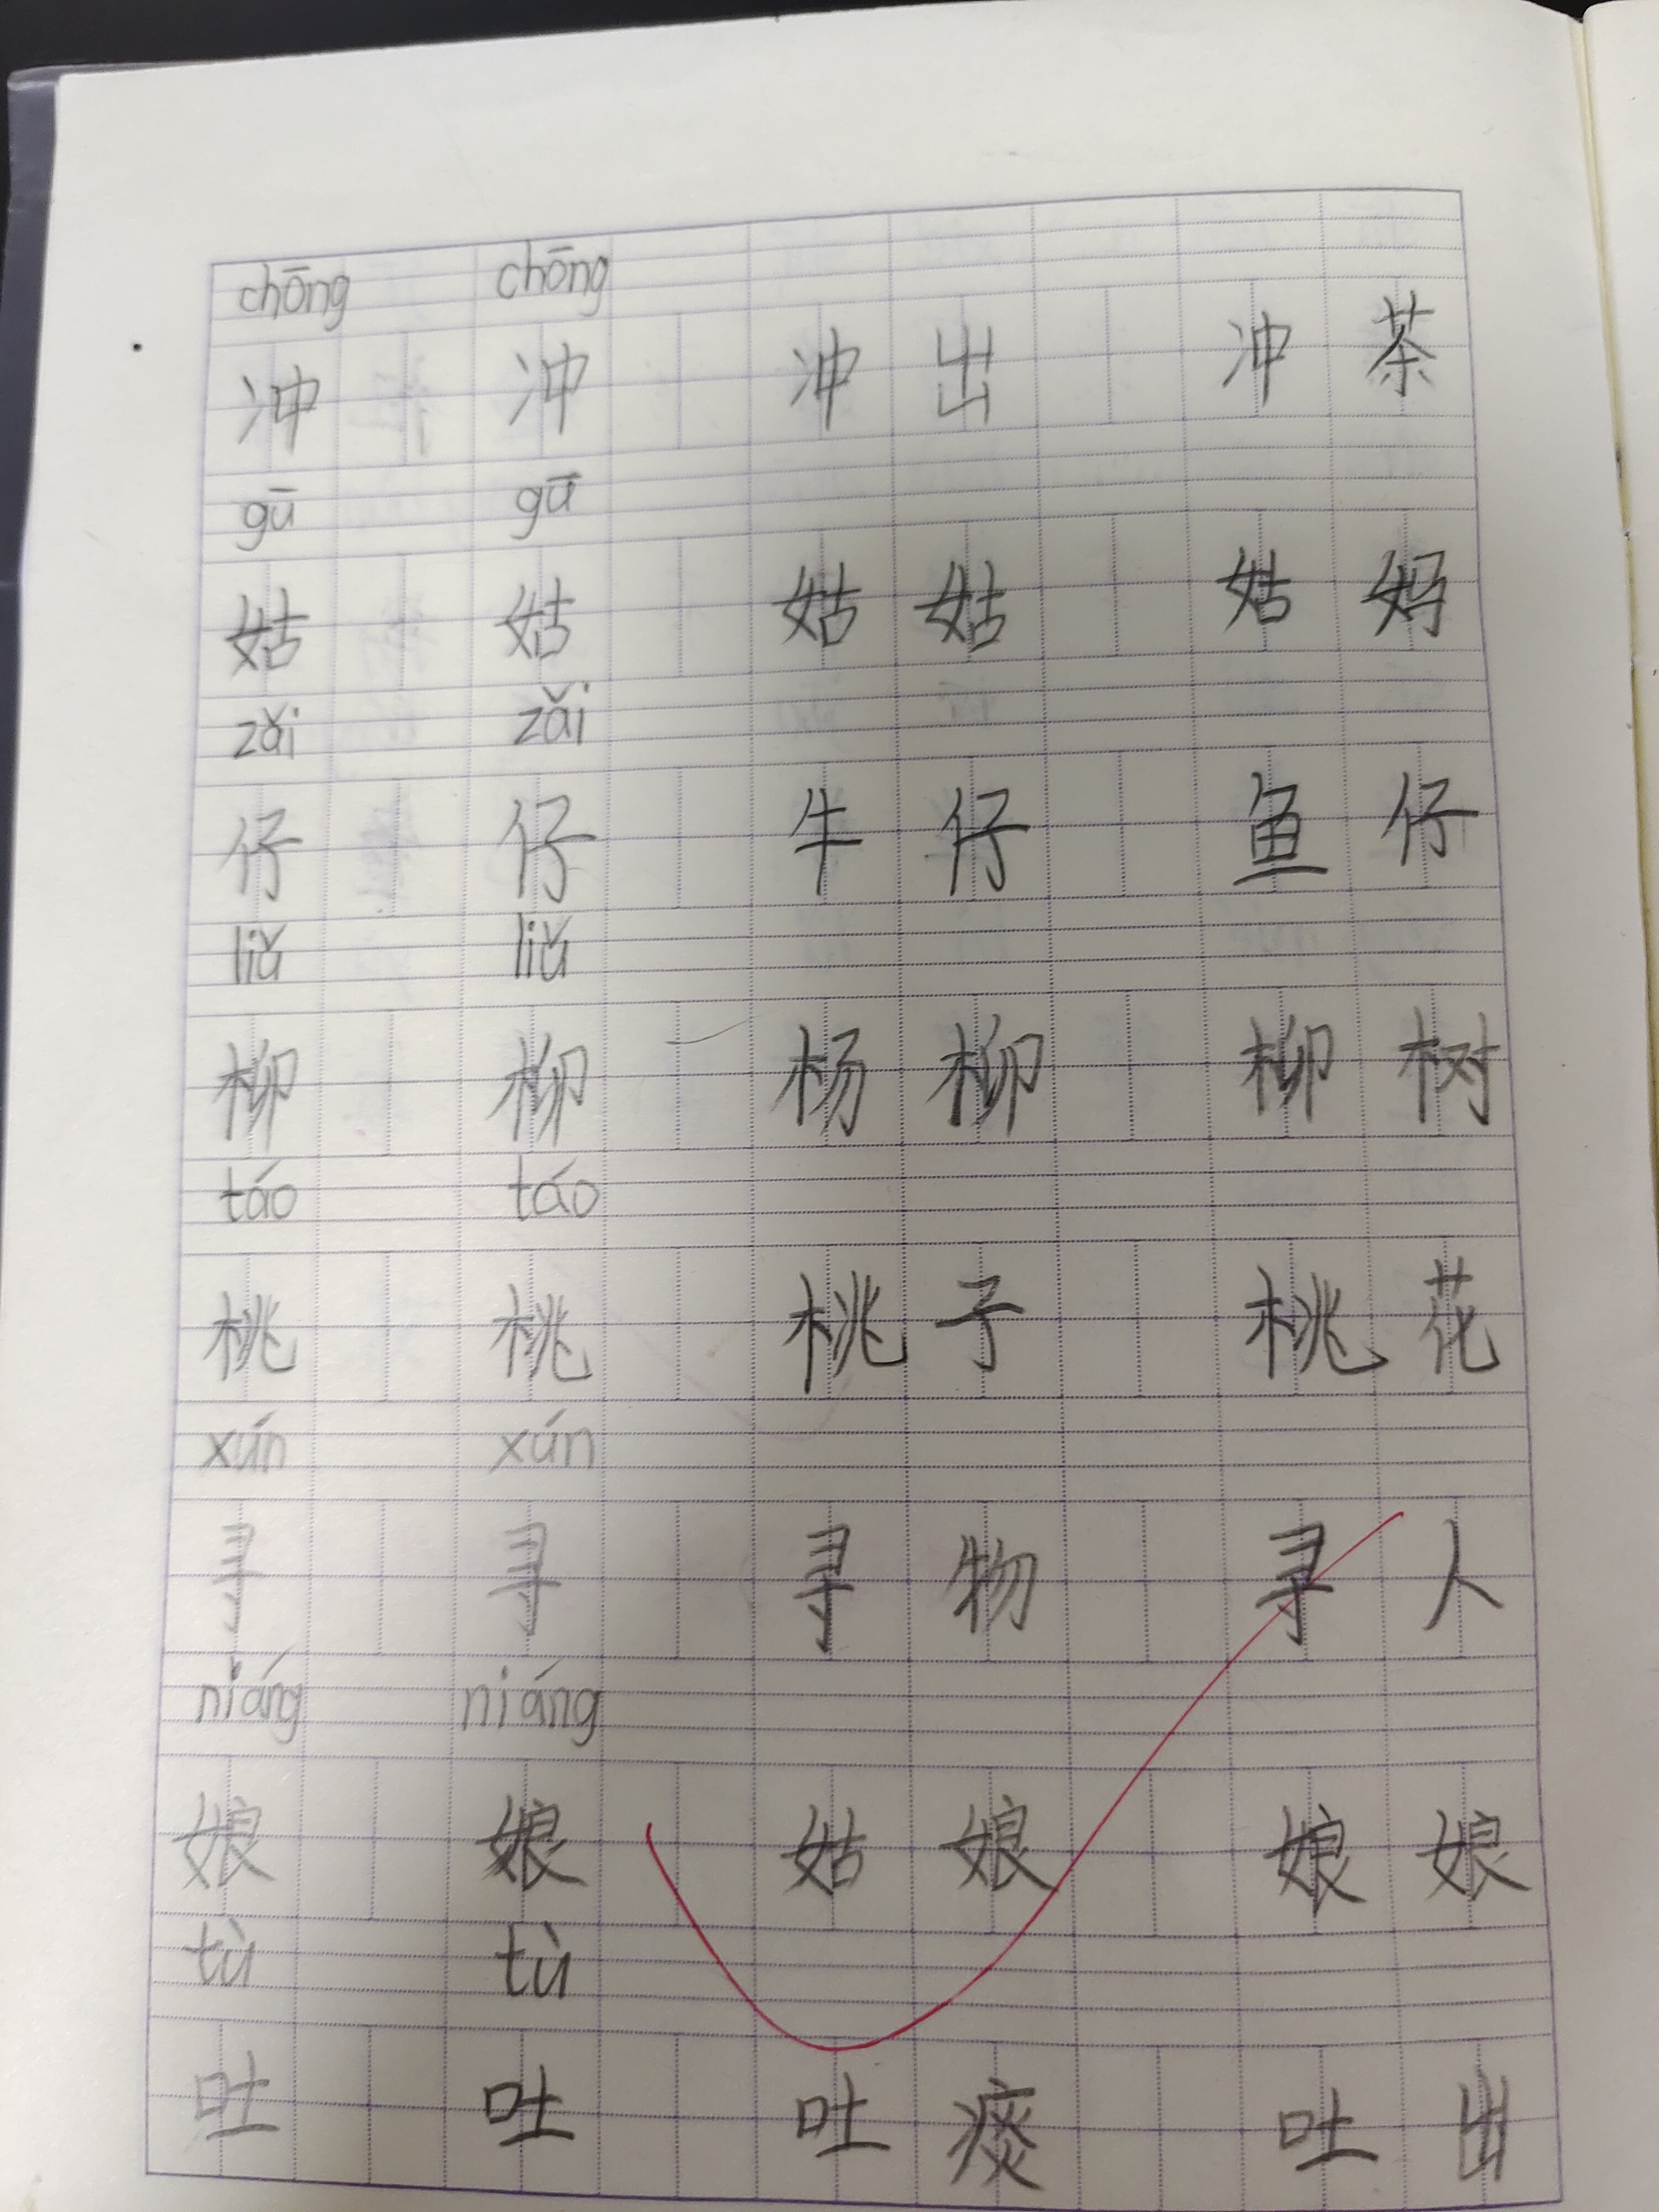 chōng chōng
冲 冲 冲出 冲茶
gū gū
姑 姑 姑姑 姑妈
zǎi zǎi
仔 仔 牛仔 鱼仔
liǔ liǔ
柳 柳 杨柳 柳树
táo táo
桃 桃 桃子 桃花
xún xún
寻 寻 寻物 寻人
niáng niáng
娘 娘 姑娘 娘娘
tù tù
吐 吐 吐痰 吐出